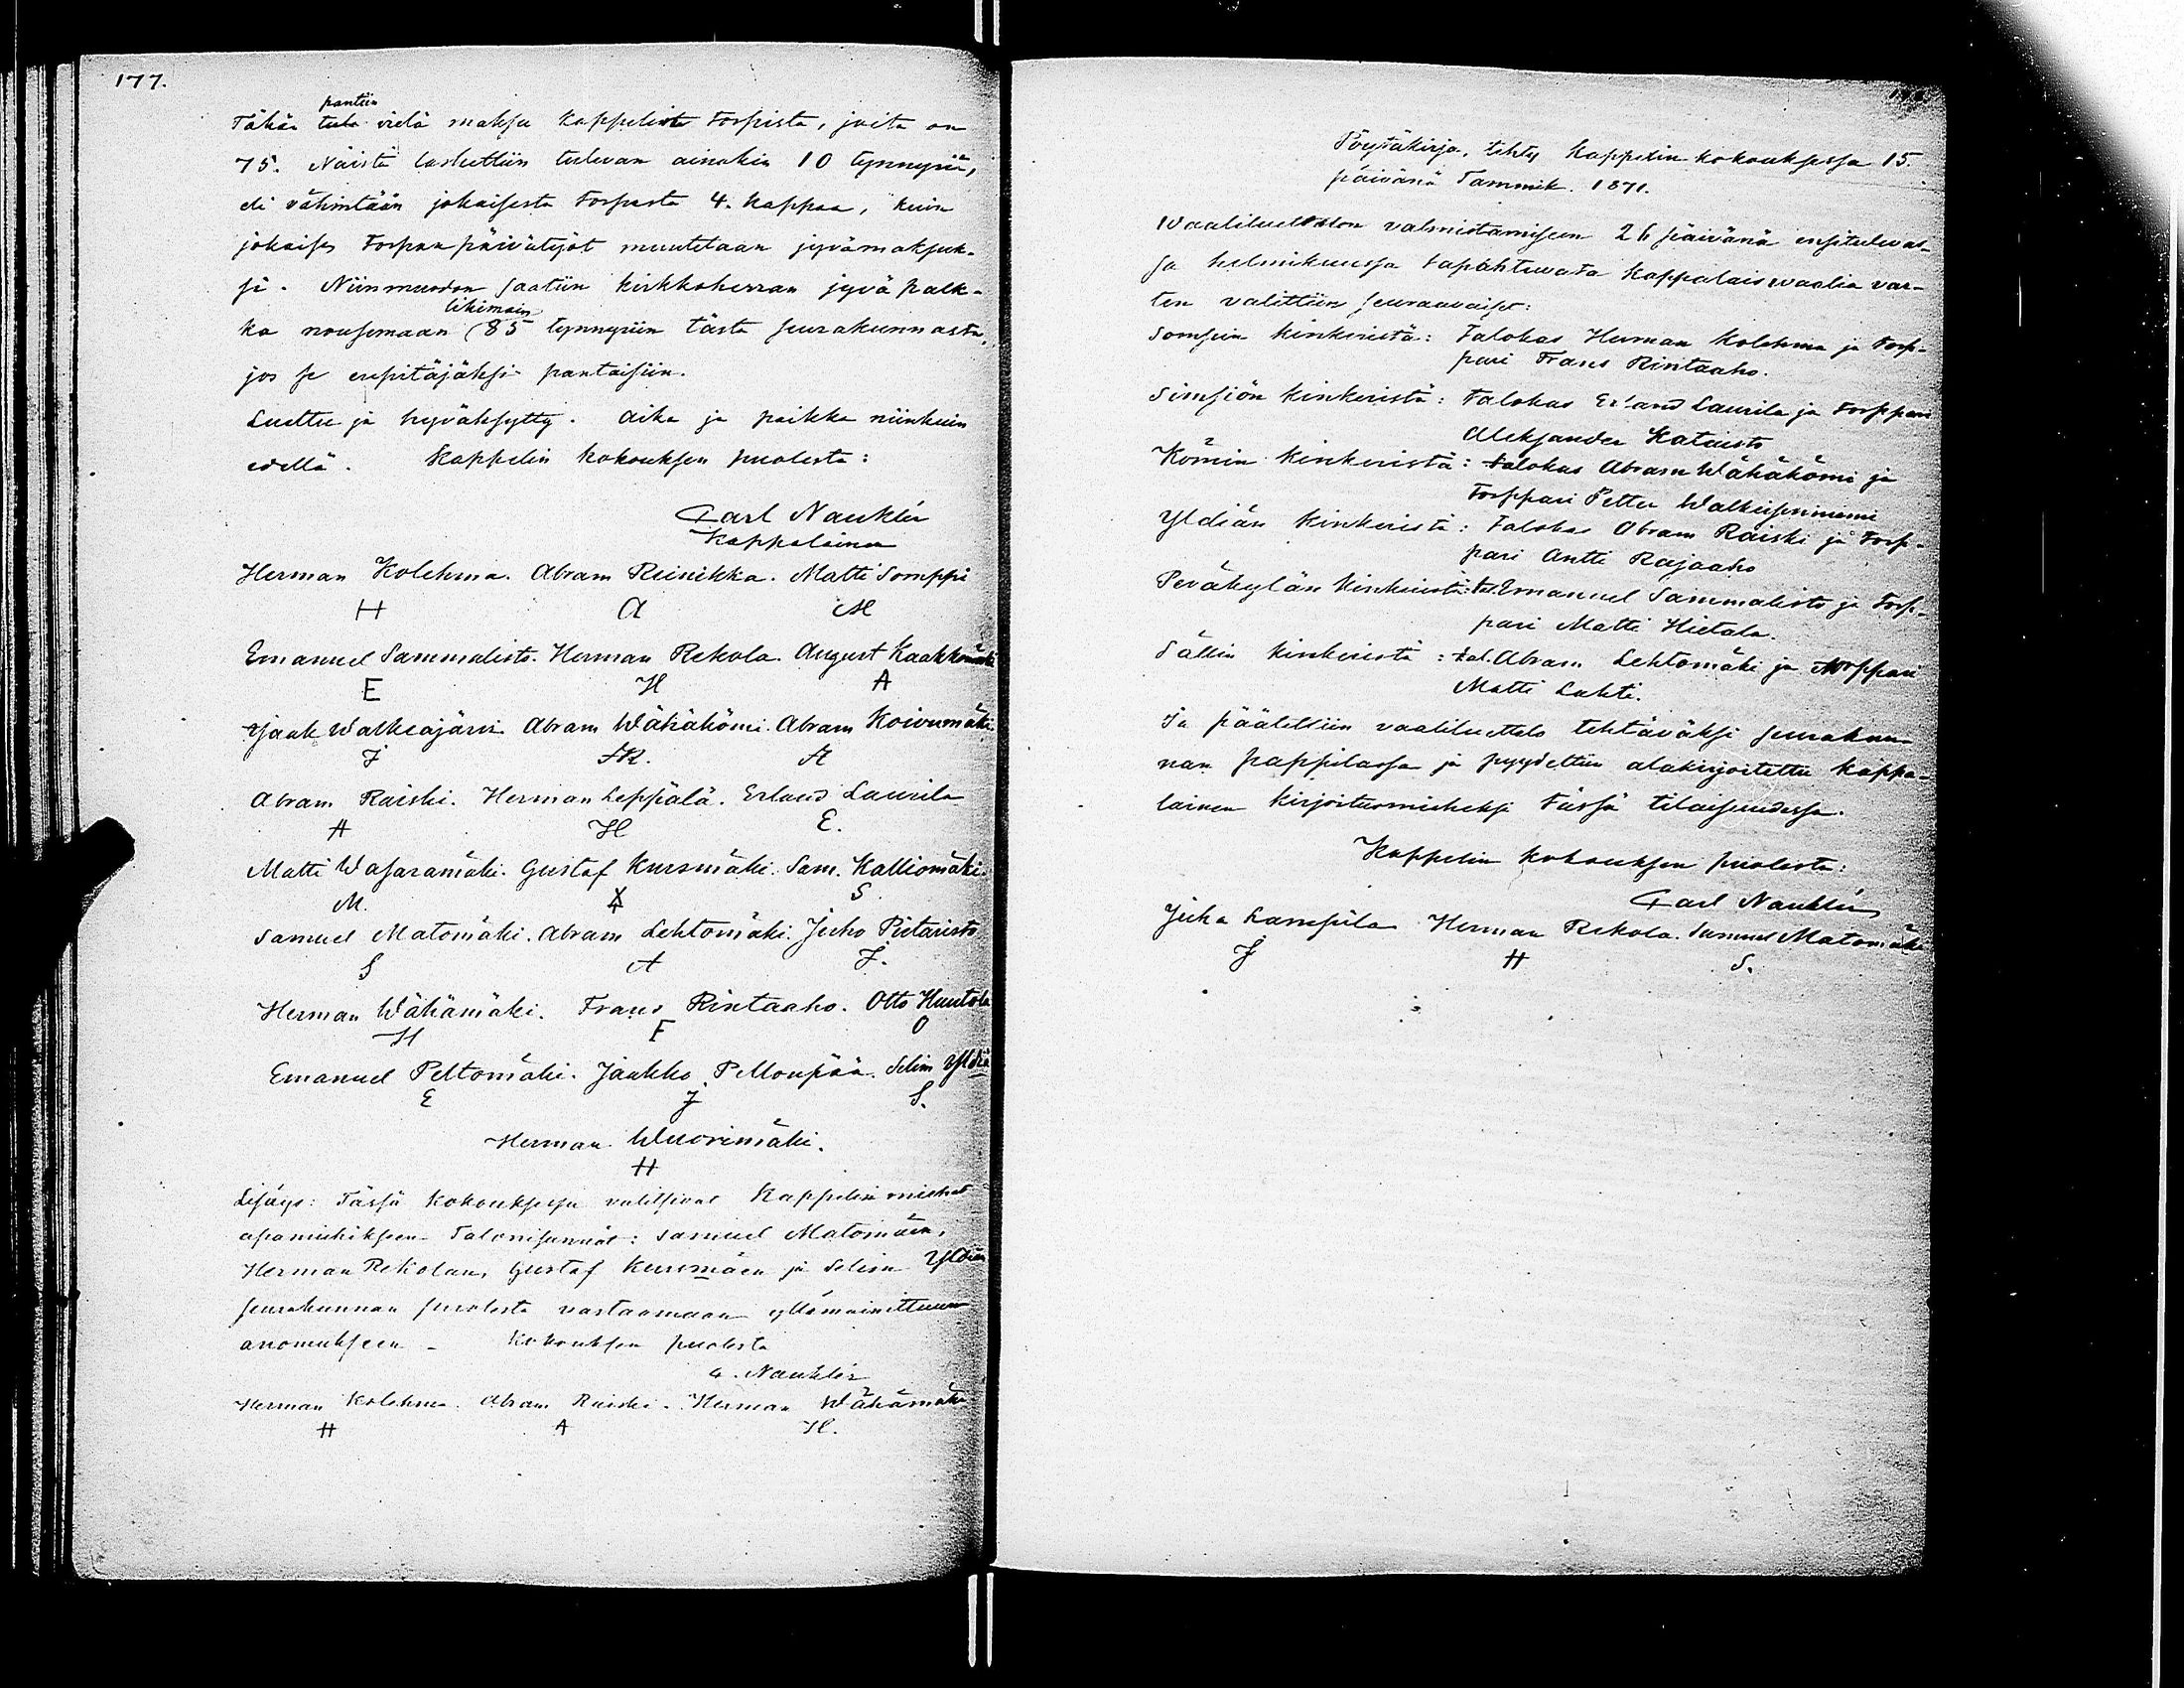 177.
pantiin
Tähän tule vielä maksu kappelista torpista, joita on
75. Näistä laskettiin tulevan ainakin 10 tynnyriä,
eli vähintään jokaisesta torpasta 4. kappaa, kuin
jokaisen torpan päivätyöt muutetaan jyvämaksuk-
si. Niinmuodon saatiin kirkkoherran jyvä palk-
likimain
ka nousemaan (85 tynnyriin tästä seurakunnasta,
jos se erpitäjäksi pantaisiin.
Luettu ja hyväksytty. Aika ja paikka niinkuin
edellä. Kappelin kokouksen puolesta:
Carl Nauklér
Kappalainen
Herman Kolehma. Abram Reinikka. Matti Somppi
H A M
Emanuel Sammalisto. Herman Rekola. August Kaakkomäki
E H A
Isaak Walkeajärvi. Abram Wähäkömi. Abram Koivumäki
I A A
Abram Raiski. Herman Leppälä. Erland Laurila
A H E.
Matti Wasaramäki. Gustaf Kursmäki. Sam. Kalliomäki.
M. S
Samuel Matomäki. Abram Lehtomäki. Juho Pietaristo
S A J.
Herman Wähämäki. Frans Rintaaho. Otto Huutola
H F O
Emanuel Peltomäki. Jaakko Pellonpää. Selim Yldiä
E J S.
Herman Wuorimäki.
H
Lisäys: Tässä kokouksessa valitsivat Kappelin miehet
asamiehikseen Talonisännät: Samuel Matomäen,
Herman Rekolan, Gustaf Kursmäen ja Selim Yldiän
seurakunnan puolesta vastaamaan yllämainittuun
anomukseen. Kokouksen puolesta
C. Nauklér
Herman Kolehma. Abram Raiski. Herman Wähämäki
H A H.
Pöytäkirja, tehty kappelin kokouksessa 15.
päivänä Tammik. 1871.
Waaliluettelon valmistamiseen 26 päivänä ensitulevas-
sa helmikuussa tapahtuvata kappalaisvaalia var-
ten valittiin seuraavaiset:
Sompin kinkeristä: Talokas Herman Kolehma ja torp-
pari Frans Rintaaho.
Simsiön kinkeristä: Talokas Erland Laurila ja torppari
Aleksander Katausto
Kömin kinkeristä: talokas Abram Wähäkömi ja
torppari Petter Walkiisniemi
Yldiän kinkeristä: talokas Abram Raiski ja torp-
pari Antti Rajaaho
Peräkylän kinkeristä: tal. Emanuel Sammalisto ja torp-
pari Matti Hietala.
Sällin kinkeristä: tal. Abram Lehtomäki ja torppari
Matti Lahti.
Ja päätettiin vaaliluettelo tehtäväksi seurakun-
nan pappilassa ja pyydettiin alakirjoitettu kappa-
lainen kirjoitusmieheksi tässä tilaisuudessa.
Kappelin kokouksen puolesta:
Carl Nauklér
Juha Lampila Herman Rekola. Samuel Matomäki
J H S.